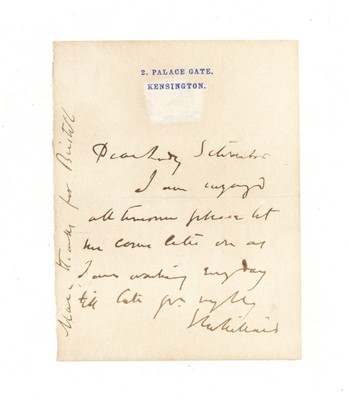 2, PALACE GATE,
KENSINGTON.
Dear Lady Schreiber
I am engaged
all tomorrow please let
me come later on as
I am working every day
till late for
Many thanks for